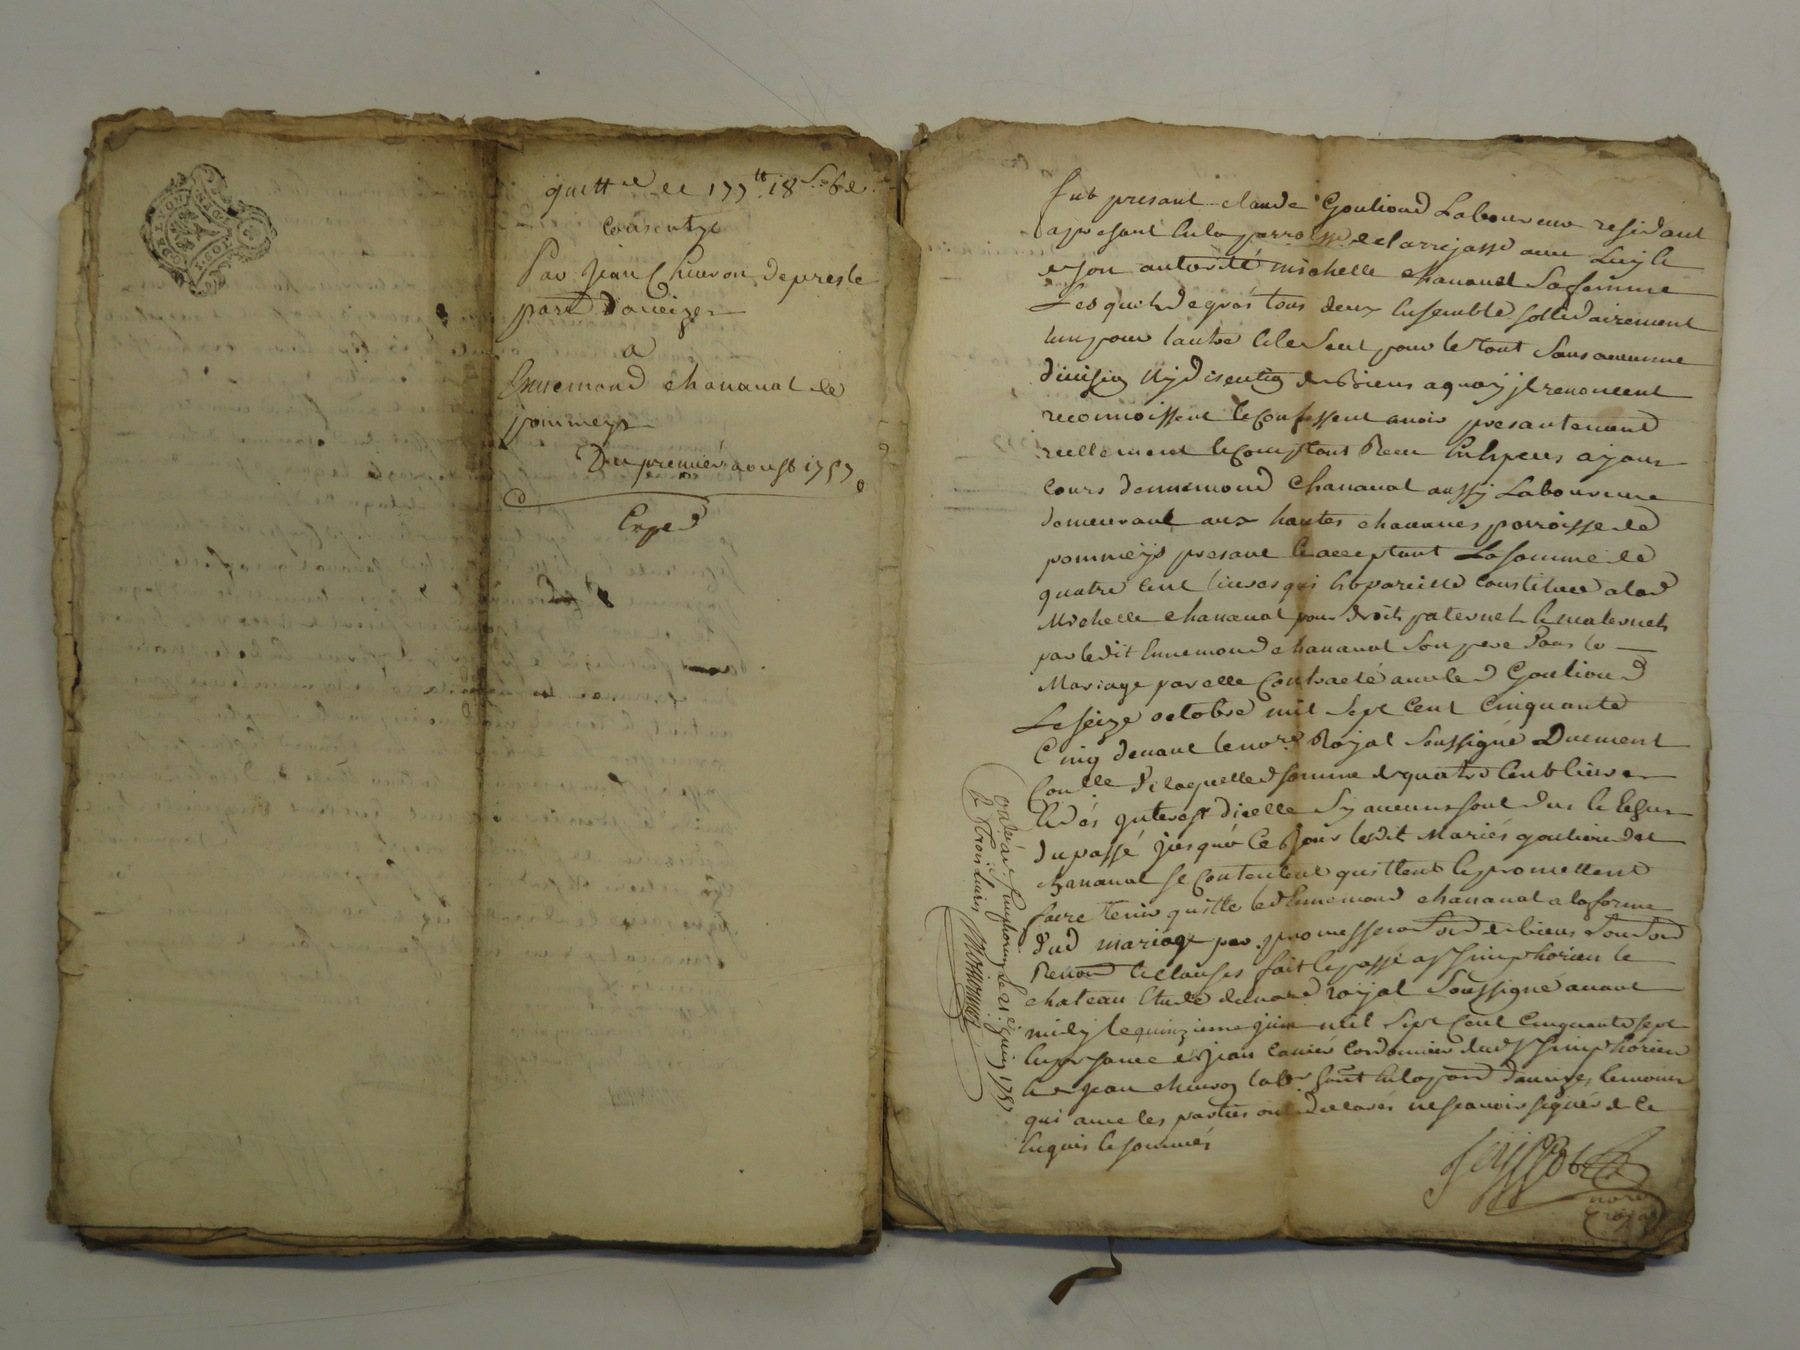 GN DE LYON
quitt.ce de 177tt 18s 6d
Par Jean Chuiron de presle
part Daveizes
a
Ennemond chananat de
pommeys
Du premier aoust 1757
Exped
fut presant claude Goutioud Laboureur residant
apresant en la parroisse de larrajasse avec luy et
de son autorité michelle chananat sa femme
Lesquels de grés tous deux ensemble sollidairement
lun pour lautre et le seul pour le tout sans aucunne
division ny discution de biens a quoy jl renoncent
reconnoissent et confessent avoir presantement
reellement et comptant Receu en especes ayant
cours dennemond chananat aussy Laboureur
demeurant aux hautes chavannes parroisse de
pommeys presant et acceptant La somme de
quatre cent livres qui est pareille constituée a lad
Michelle chananat pour droits paternels et maternels
par ledit Ennemond chananat son pere dans le
Mariage par elle contracté avec led Goutioud
Le seize octobre mil sept cent cinquante
Cinq devant le no.re Royal soussigné Duement
Con.llé de laquelle d somme de quatre cent livres
et des jnterest dicelle sy aucuns sont dus et echus
du passé jusqu'a ce jour lesdit Mariés goutioud et
chananat se contentent quittent et promettent
faire tenir quitte led Ennemond chananat a la forme
dud mariage par promesse
Renon et clauses fait et passé a St Simphorien le
chateau Etude du no.re royal soussigné avant
midy le quinzieme juin mil sept cent cinquante sept
en presance de Jean canier cordonnier dud St Simphorien
et de Jean chuiron lab.r en la part daveizes temoins
qui avec les parties ont declarés ne sçavoir signer de ce
enquis et sommés
nore
royal
controllé a St Simphorien le 21e juin 1757
R trois livres